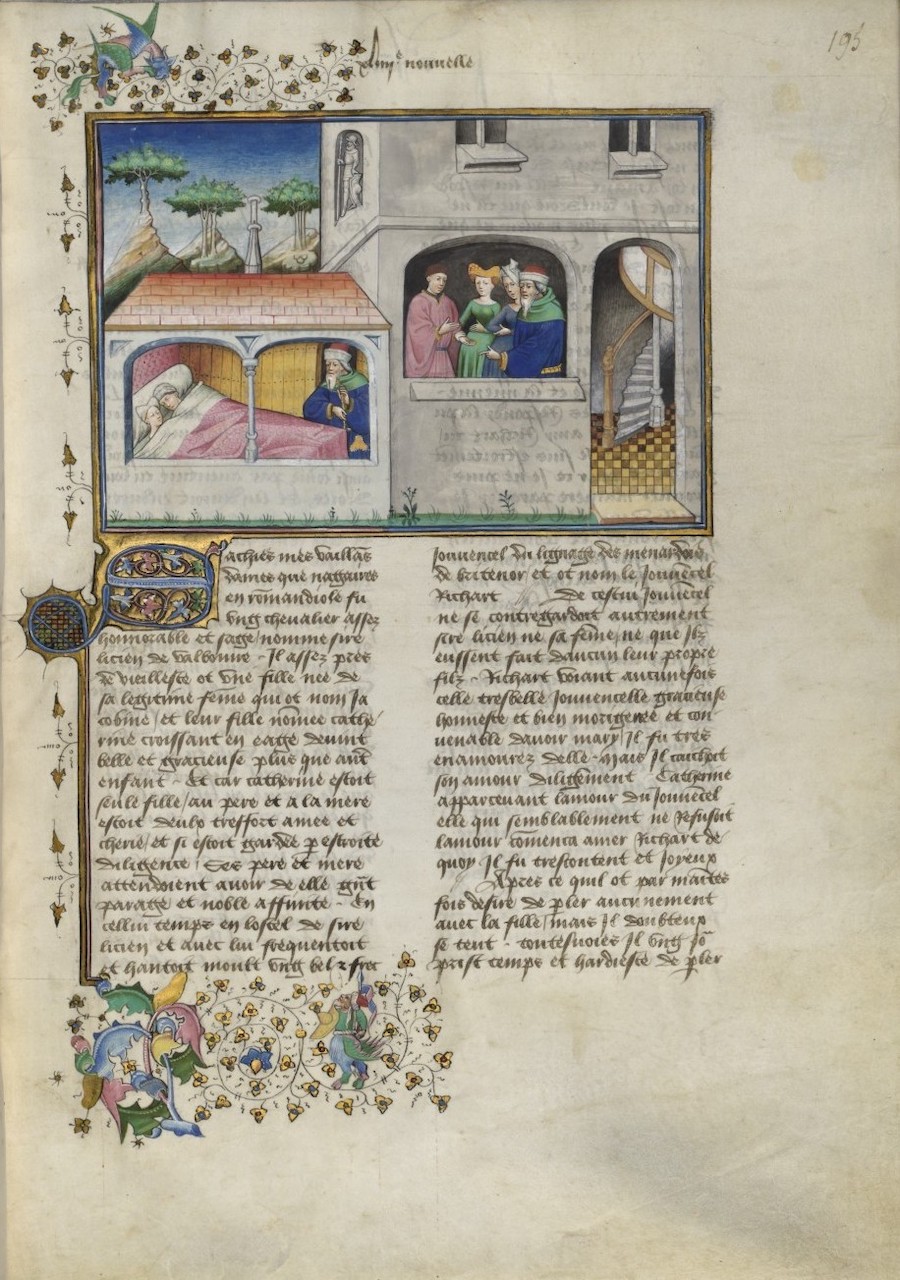 xliiij.e nouuelle
195
Sachies mes vaillãs
dames que nagaires
en rõmandiole fu
vng cheualier assez
honnorable et sage nomme sire
licien de valbonne. Il assez pres
de vieillesse ot vne fille nee de
sa legitime fẽme qui ot nom Ja
cobine / et leur fille nõmee cathe
rine croissant en eage deuint
belle et gracieuse plus que autre
enfant. Et car catherine estoit
seule fille au pere et a la mere
estoit deulx tresfort amee et
cherie / et si estoit gardee p estroite
diligence / Ses pere et mere
attendoient auoir de elle gñt
parage et noble affinite. En
cellui temps en lostel de sire
licien et auec lui frequentoit
et hantoit moult vng bel ⁊ frec
Jouuencel du lignage des menardois
de britenor / et ot nom le Jouuẽcel
Richart De cestui Jouuẽcel
ne se contregardoit autrement
sire licien ne sa fẽme / ne que Ilz
eussent fait daucun leur propre
filz. Richart voiant aucunefois
celle tresbelle Jouuencelle gracieuse
honneste et bien morigenee et con
uenable dauoir mary / Il fu tres
enamourez delle. Mais Il cachoit
son amour diligement. Catherine
apparceuant lamour du Jouuẽcel
elle qui semblablement ne refusoit
lamour cõmenca amer Richart de
quoy Il fu trescontent et Joyeux
Apres ce quil ot par maĩtes
fois desire de pler aucunement
auec la fille / mais Il doubteux
se teut. toutesuoies Il vng Jõ
prist temps et hardiesce de pler